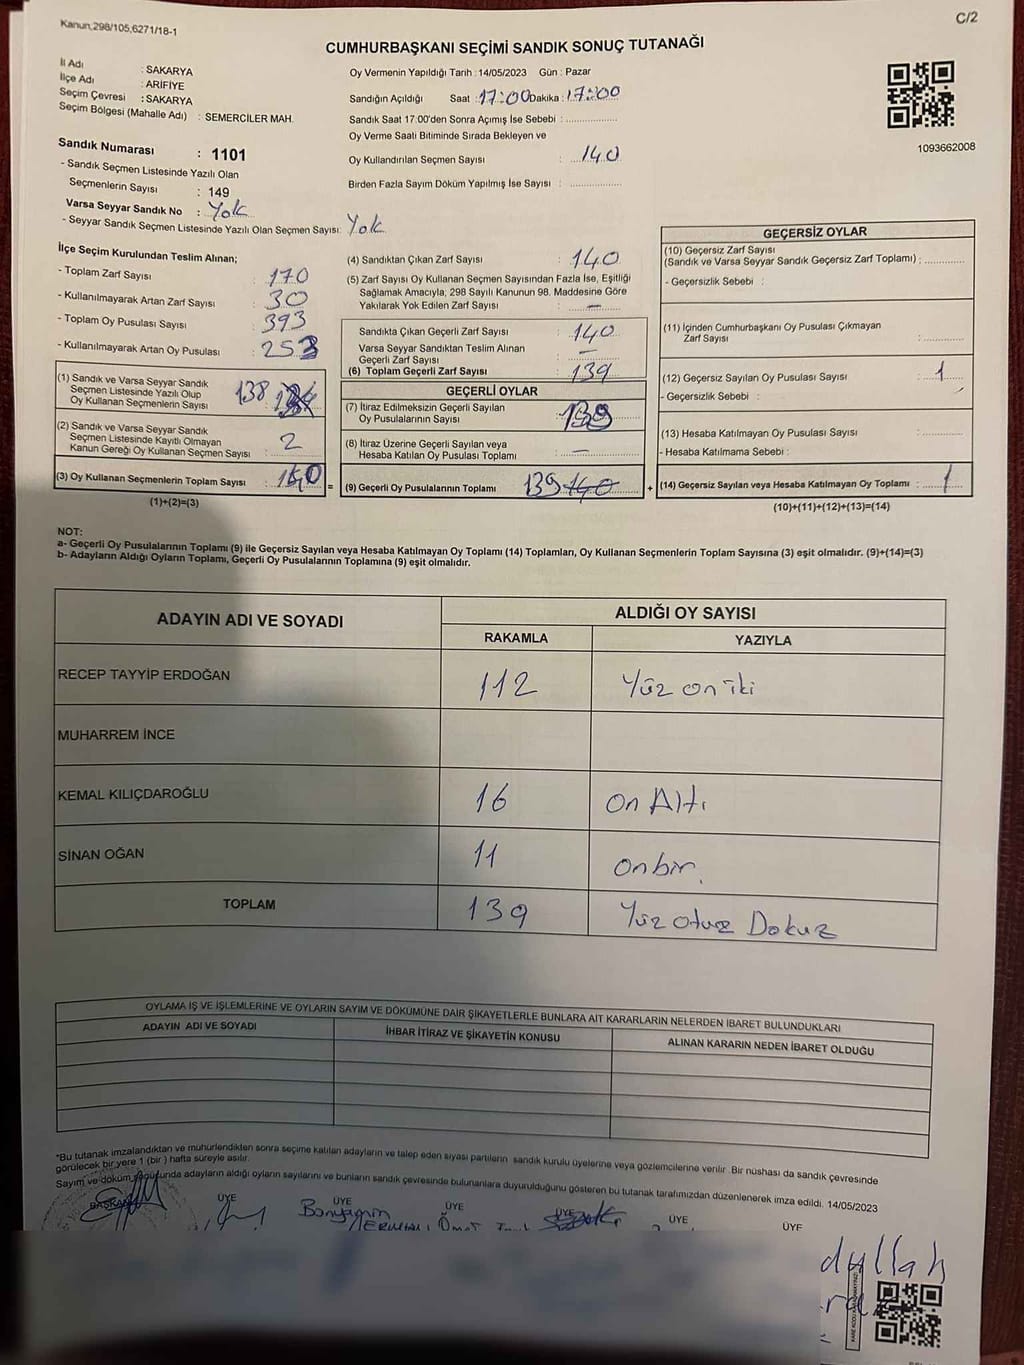 Kanun,298/105,6271/18-1
C/2
CUMHURBAŞKANI SEÇİMİ SANDIK SONUÇ TUTANAĞI
İl Adı : SAKARYA
İlçe Adı : ARİFİYE
Seçim Çevresi : SAKARYA
Seçim Bölgesi (Mahalle Adı) : SEMERCİLER MAH.
Sandık Numarası : 1101
- Sandık Seçmen Listesinde Yazılı Olan
Seçmenlerin Sayısı : 149
Varsa Seyyar Sandık No : Yok
- Seyyar Sandık Seçmen Listesinde Yazılı Olan Seçmen Sayısı: Yok
Oy Vermenin Yapıldığı Tarih : 14/05/2023 Gün : Pazar
Sandığın Açıldığı Saat : 17:00 Dakika : 17:00
Sandık Saat 17:00'den Sonra Açımış İse Sebebi : ................
Oy Verme Saati Bitiminde Sırada Bekleyen ve
Oy Kullandırılan Seçmen Sayısı : 140
Birden Fazla Sayım Döküm Yapılmış İse Sayısı : ................
1093662008
İlçe Seçim Kurulundan Teslim Alınan;
- Toplam Zarf Sayısı : 170
- Kullanılmayarak Artan Zarf Sayısı : 30
- Toplam Oy Pusulası Sayısı : 393
- Kullanılmayarak Artan Oy Pusulası : 253
(1) Sandık ve Varsa Seyyar Sandık
Seçmen Listesinde Yazılı Olup
Oy Kullanan Seçmenlerin Sayısı : 138
(2) Sandık ve Varsa Seyyar Sandık
Seçmen Listesinde Kayıtlı Olmayan
Kanun Gereği Oy Kullanan Seçmen Sayısı : 2
(3) Oy Kullanan Seçmenlerin Toplam Sayısı : 140
(1)+(2)=(3)
(4) Sandıktan Çıkan Zarf Sayısı : 140
(5) Zarf Sayısı Oy Kullanan Seçmen Sayısından Fazla İse, Eşitliği
Sağlamak Amacıyla, 298 Sayılı Kanunun 98. Maddesine Göre
Yakılarak Yok Edilen Zarf Sayısı : —
Sandıkta Çıkan Geçerli Zarf Sayısı : 140
Varsa Seyyar Sandıktan Teslim Alınan
Geçerli Zarf Sayısı : —
(6) Toplam Geçerli Zarf Sayısı : 139
GEÇERLİ OYLAR
(7) İtiraz Edilmeksizin Geçerli Sayılan
Oy Pusulalarının Sayısı : 139
(8) İtiraz Üzerine Geçerli Sayılan veya
Hesaba Katılan Oy Pusulası Toplamı : —
= (9) Geçerli Oy Pusulalarının Toplamı : 139 140
GEÇERSİZ OYLAR
(10) Geçersiz Zarf Sayısı
(Sandık ve Varsa Seyyar Sandık Geçersiz Zarf Toplamı) : ............
- Geçersizlik Sebebi :
(11) İçinden Cumhurbaşkanı Oy Pusulası Çıkmayan
Zarf Sayısı : ............
(12) Geçersiz Sayılan Oy Pusulası Sayısı : 1
- Geçersizlik Sebebi :
(13) Hesaba Katılmayan Oy Pusulası Sayısı : ............
- Hesaba Katılmama Sebebi :
+ (14) Geçersiz Sayılan veya Hesaba Katılmayan Oy Toplamı : 1
(10)+(11)+(12)+(13)=(14)
NOT:
a- Geçerli Oy Pusulalarının Toplamı (9) ile Geçersiz Sayılan veya Hesaba Katılmayan Oy Toplamı (14) Toplamları, Oy Kullanan Seçmenlerin Toplam Sayısına (3) eşit olmalıdır. (9)+(14)=(3)
b- Adayların Aldığı Oyların Toplamı, Geçerli Oy Pusulalarının Toplamına (9) eşit olmalıdır.
ADAYIN ADI VE SOYADI
ALDIĞI OY SAYISI
RAKAMLA YAZIYLA
RECEP TAYYİP ERDOĞAN 112 Yüz on iki
MUHARREM İNCE
KEMAL KILIÇDAROĞLU 16 On Altı
SİNAN OĞAN 11 onbir.
TOPLAM 139 Yüz otuz Dokuz
OYLAMA İŞ VE İŞLEMLERİNE VE OYLARIN SAYIM VE DÖKÜMÜNE DAİR ŞİKAYETLERLE BUNLARA AİT KARARLARIN NELERDEN İBARET BULUNDUKLARI
ADAYIN ADI VE SOYADI İHBAR İTİRAZ VE ŞİKAYETİN KONUSU ALINAN KARARIN NEDEN İBARET OLDUĞU
*Bu tutanak imzalandıktan ve mühürlendikten sonra seçime katılan adayların ve talep eden siyasi partilerin sandık kurulu üyelerine veya gözlemcilerine verilir. Bir nüshası da sandık çevresinde
görülecek bir yere 1 (bir) hafta süreyle asılır.
Sayım ve döküm sonunda adayların aldığı oyların sayılarını ve bunların sandık çevresinde bulunanlara duyurulduğunu gösteren bu tutanak tarafımızdan düzenlenerek imza edildi. 14/05/2023
BAŞKAN ÜYE ÜYE ÜYE ÜYE ÜYE ÜYE